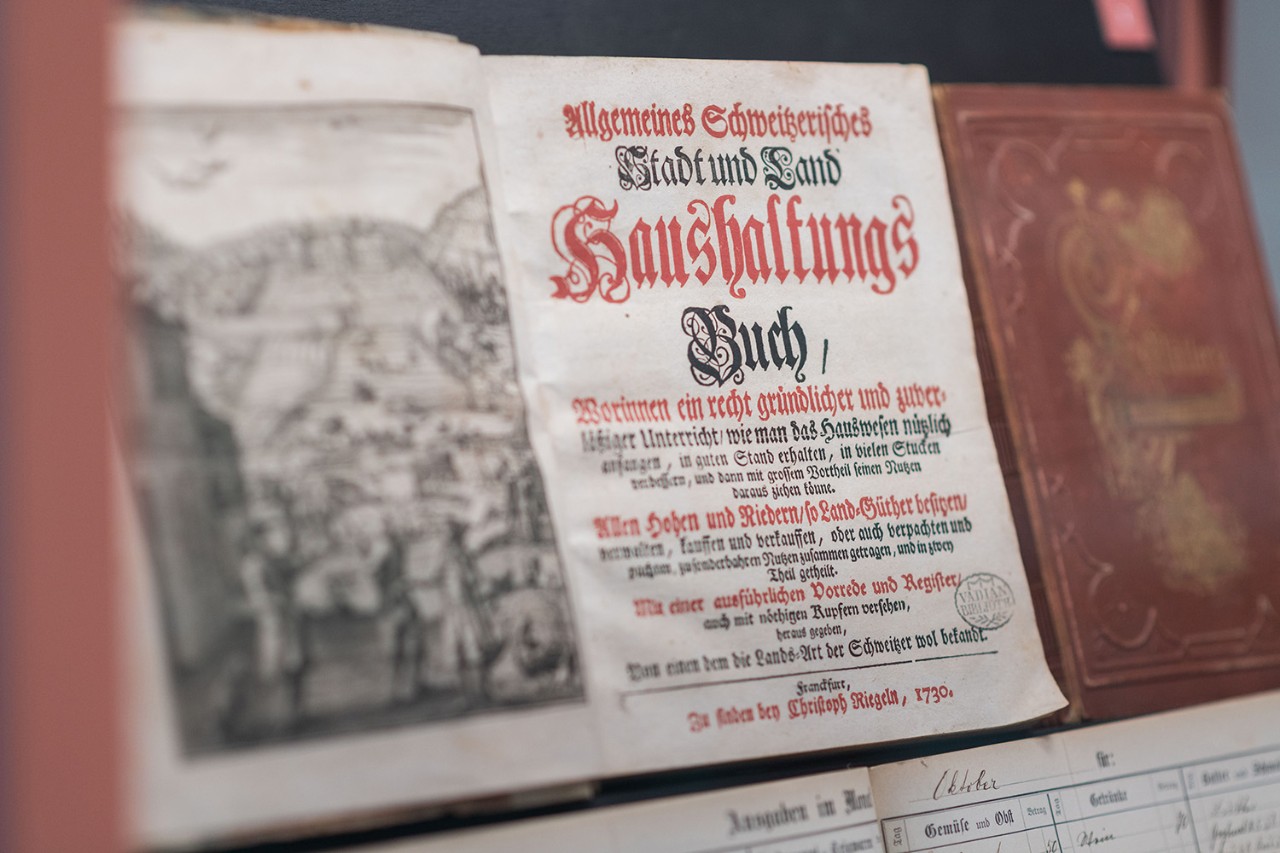 Allgemeines Schweitzerisches
Stadt und Land
Haushaltungs
Buch /
Worinnen ein recht gründlicher und zuver-
läßiger Unterricht / wie man das Hauswesen nützlich
anfangen, in guten Stand erhalten, in vielen Stucken
verbessern, und dann mit grossem Vortheil seinen Nutzen
daraus ziehen könne.
Allen Hohen und Niedern / so Land-Güther besitzen /
verwalten, kauffen und verkauffen, oder auch verpachten und
pachten, zu sonderbahren Nutzen zusammen getragen, und in zwey
Theil getheilt.
Mit einer ausführlichen Vorrede und Register /
auch mit nöthigen Kupfern versehen,
heraus gegeben,
Von einen dem die Lands-Art der Schweitzer wol bekandt.
VADIAN
BIBLIOTH
Franckfurt,
Zu finden bey Christoph Riegeln, 1730.
Ausgaben im
Oktober
für:
Tag
Gemüse und Obst
Betrag
Tag
Getränke